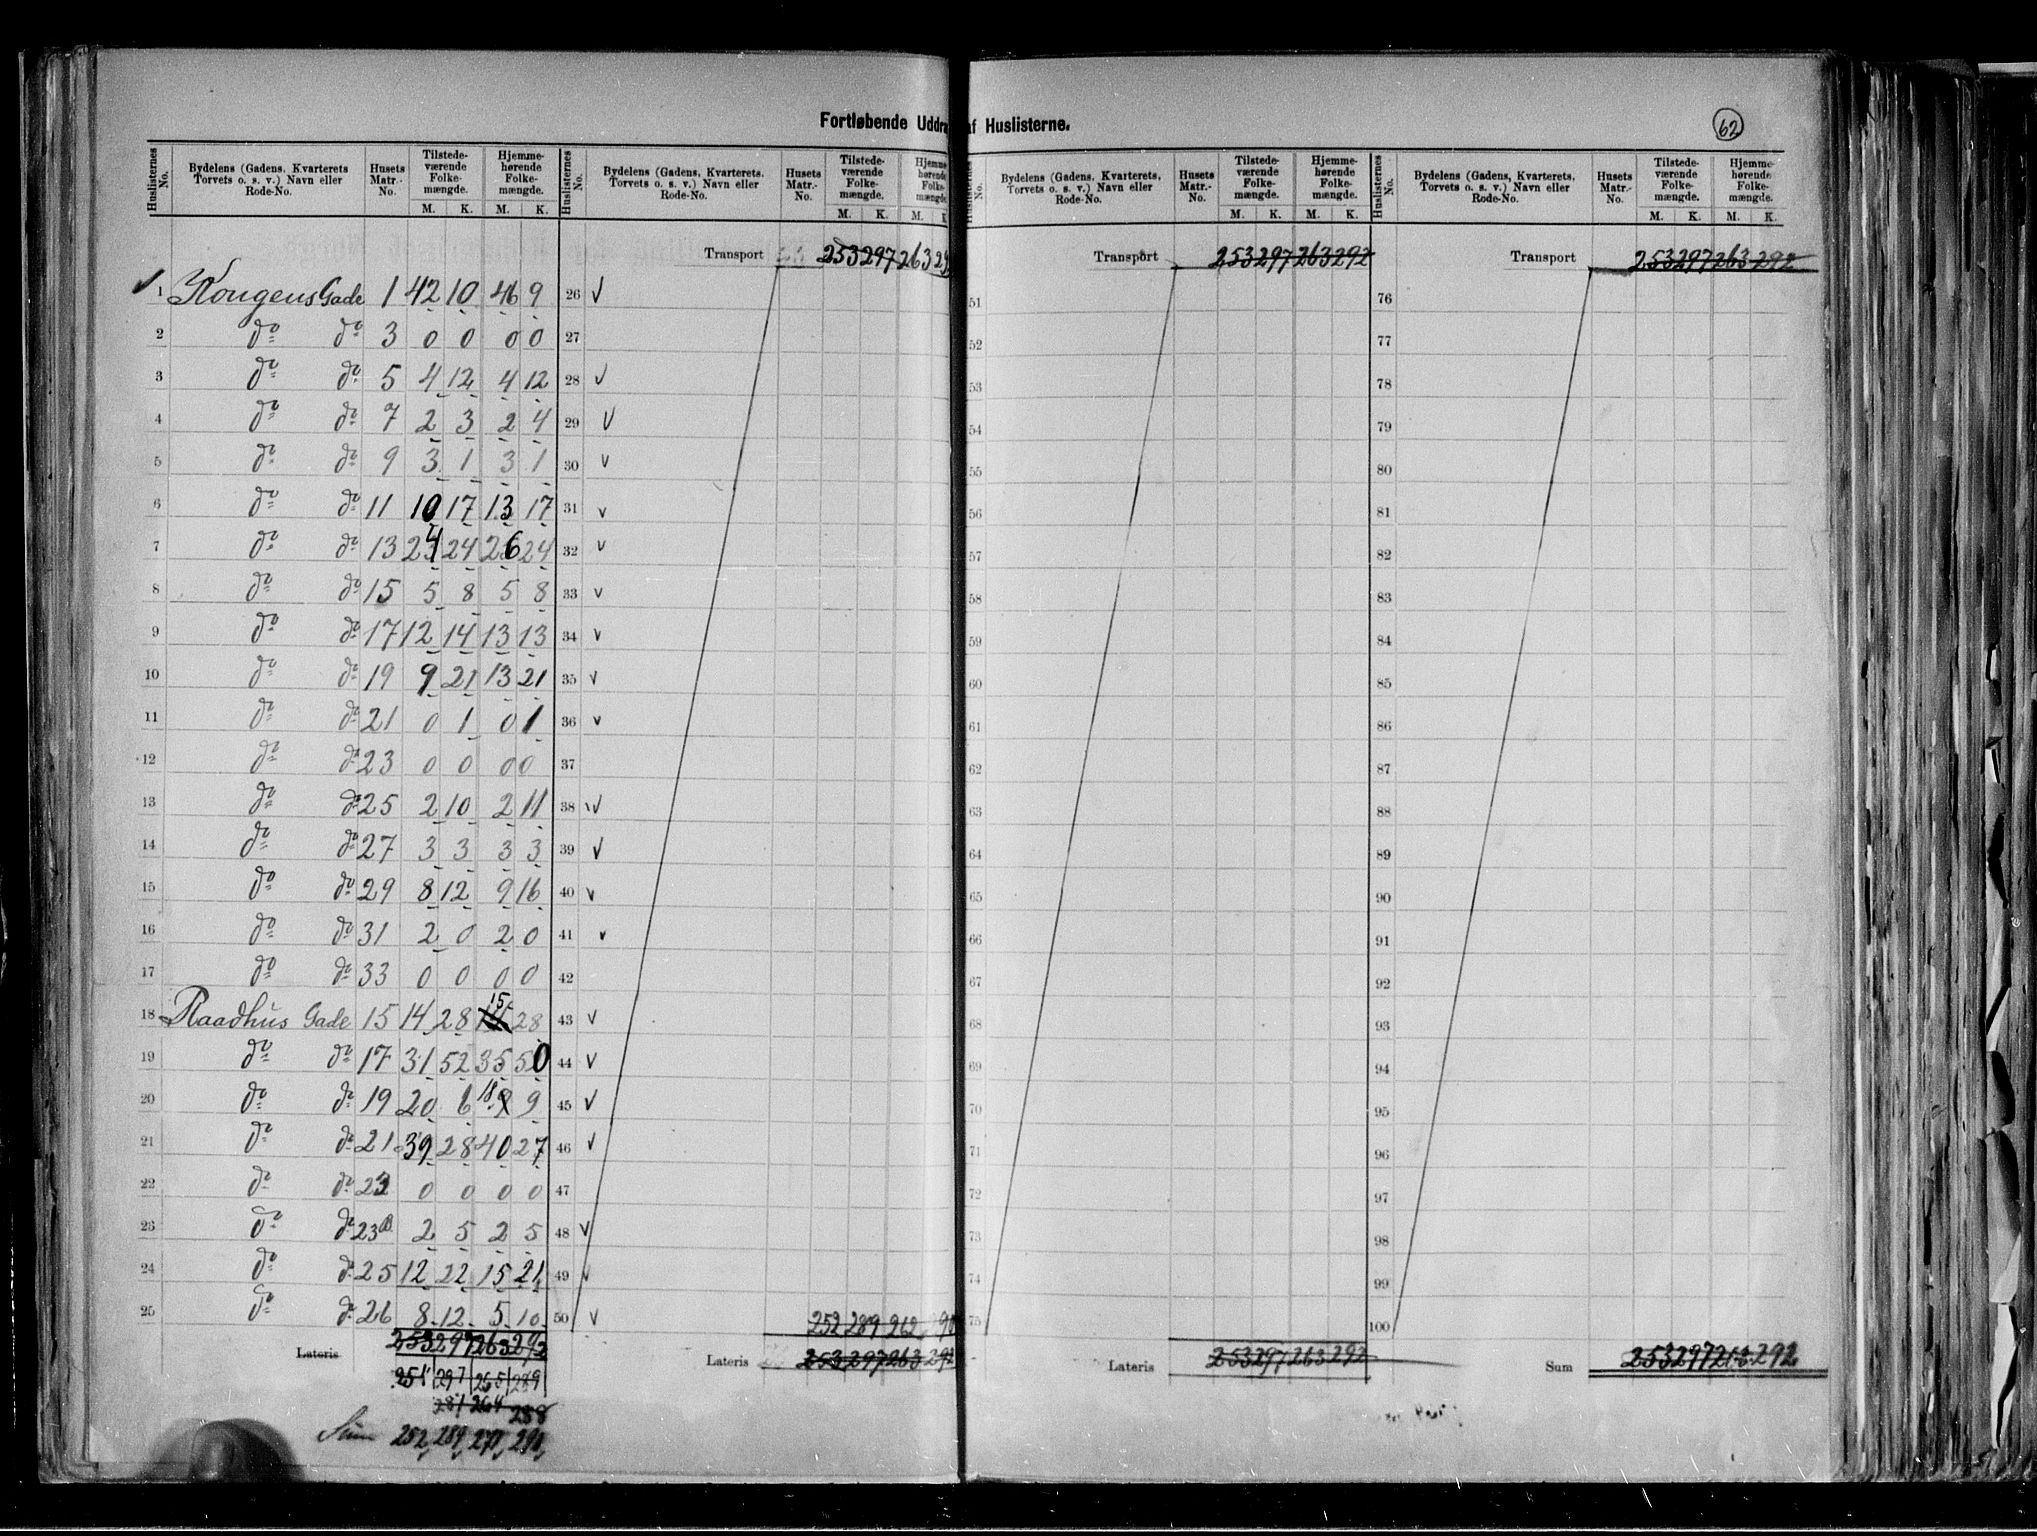 Fortløbende Uddra af Huslisterne.
62
Huslisternes No. Bydelens (Gadens, Kvarterets Torvets o. s. v.) Navn eller Rode-No. Husets Matr.-No. Tilstede-værende Folke-mængde. M. K. Hjemme-hørende Folke-mængde. M. K.
Huslisternes No. Bydelens (Gadens, Kvarterets, Torvets o. s. v.) Navn eller Rode-No. Husets Matr.-No. Tilstede-værende Folke-mængde. M. K. Hjemme-hørende Folke-mængde M.
No. Bydelens (Gadens, Kvarterets, Torvets o. s. v.) Navn eller Rode-No. Husets Matr.-No. Tilstede-værende Folke-mængde. M. K. Hjemme-hørende Folke-mængde. M. K.
Huslisternes No. Bydelens (Gadens, Kvarterets, Torvets o. s. v.) Navn eller Rode-No. Husets Matr.-No. Tilstede-værende Folke-mængde. M. K. Hjemme-hørende Folke-mængde. M. K.
1 Kongens Gade 1 42 10 46 9
2 do do 3 0 0 0 0
3 do do 5 4 12 4 12
4 do do 7 2 3 2 4
5 do do 9 3 1 3 1
6 do do 11 10 17 13 17
7 do do 13 24 24 26 24
8 do do 15 5 8 5 8
9 do do 17 12 14 13 13
10 do do 19 9 21 13 21
11 do do 21 0 1 0 1
12 do do 23 0 0 0 0
13 do do 25 2 10 2 11
14 do do 27 3 3 3 3
15 do do 29 8 12 9 16
16 do do 31 2 0 2 0
17 do do 33 0 0 0 0
18 Raadhus Gade 15 14 28 15 28
19 do do 17 31 52 35 50
20 do do 19 20 6 18 9
21 do do 21 39 28 40 27
22 do do 23 0 0 0 0
23 do do 23 2 5 2 5
24 do do 25 12 22 15 21
25 do do 26 8 12 5 10
Lateris 253 297 263 292
251 297 265 289
281 264 288
Sum 252 289 271 290
Transport 253 297 263 29
26 V
27
28 V
29 V
30 V
31 V
32 V
33 V
34 V
35 V
36 V
37
38 V
39 V
40 V
41 V
42
43 V
44 V
45 V
46 V
47
48 V
49 V
50 V
252 289 262 90
Lateris 253 297 263 292
Transport 253 297 263 292
51
52
53
54
55
56
57
58
59
60
61
62
63
64
65
66
67
68
69
70
71
72
73
74
75
Lateris 253 297 263 292
Transport 253 297 263 292
76
77
78
79
80
81
82
83
84
85
86
87
88
89
90
91
92
93
94
95
96
97
98
99
100
Sum 253 297 263 292